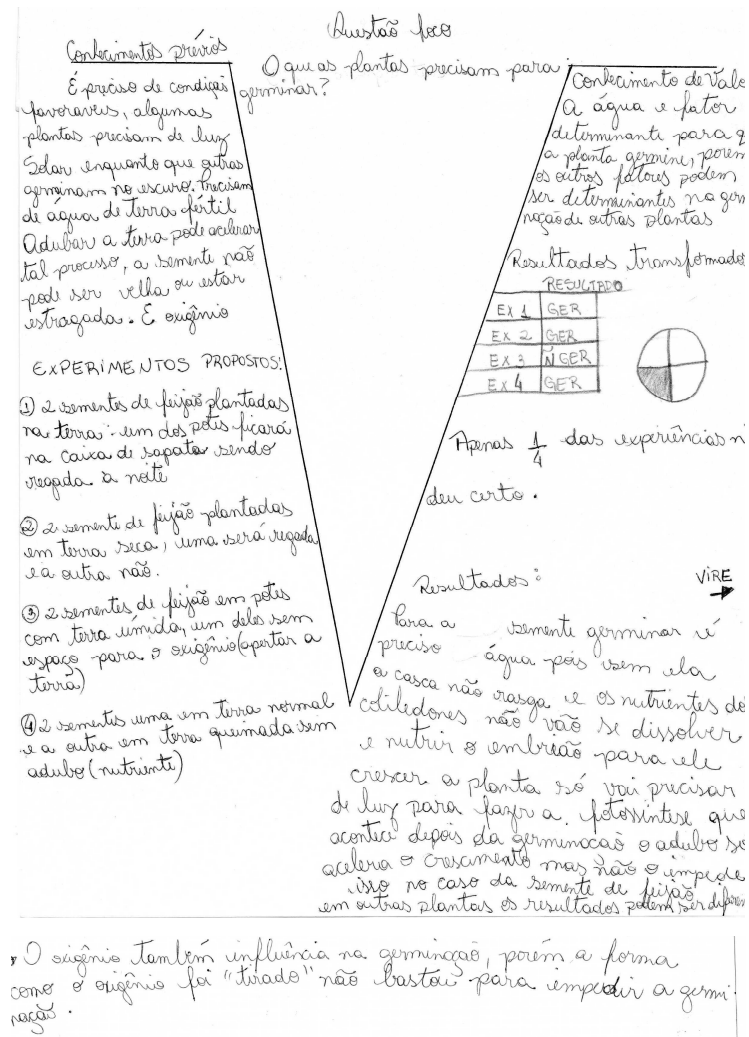 Questão foco
O que as plantas precisam para
germinar?
Conhecimentos prévios
É preciso de condiçõis
favoraveis, algumas
plantas precisam de luz
Solar enquanto que outras
germinam no escuro. Precisam
de água, de terra fértil
Adubar a terra pode acelerar
tal processo, a semente não
pode ser velha ou estar
estragada. E oxigênio
EXPERIMENTOS PROPOSTOS:
① 2 sementes de feijão plantadas
na terra: um dos potes ficará
na caixa de sapato sendo
regada à noite
② 2 semente de feijão plantadas
em terra seca, uma será regada
e a outra não.
③ 2 sementes de feijão em potes
com terra úmida, um deles sem
espaço para o oxigênio (apertar a
terra)
④ 2 sementes uma em terra normal
e a outra em terra queimada sem
adubo (nutriente)
Conhecimento de Valo
a água e fator
determinante para q
a planta germine, porem
os outros fatores podem
ser determinantes na germ
nação de outras plantas
Resultados transformados
RESULTADO
EX 1 GER
EX 2 GER
EX 3 Ñ GER
EX 4 GER
Apenas 1/4 das experiências n
deu certo.
Resultados:
VIRE
Para a semente germinar é
preciso água pois sem ela
a casca não rasga e os nutrientes do
cotiledones não vão se dissolver
e nutrir o embreão para ele
crescer a planta só vai precisar
de luz para fazer a fotossintese que
acontece depois da germinacao o adubo so
acelera o crescimento mas não o impede
isso no caso da semente de feijão
em outras plantas os resultados podem ser diferen
O oxigênio também influência na germinação, porém a forma
como o oxigênio foi "tirado" não bastou para impedir a germi-
nação.